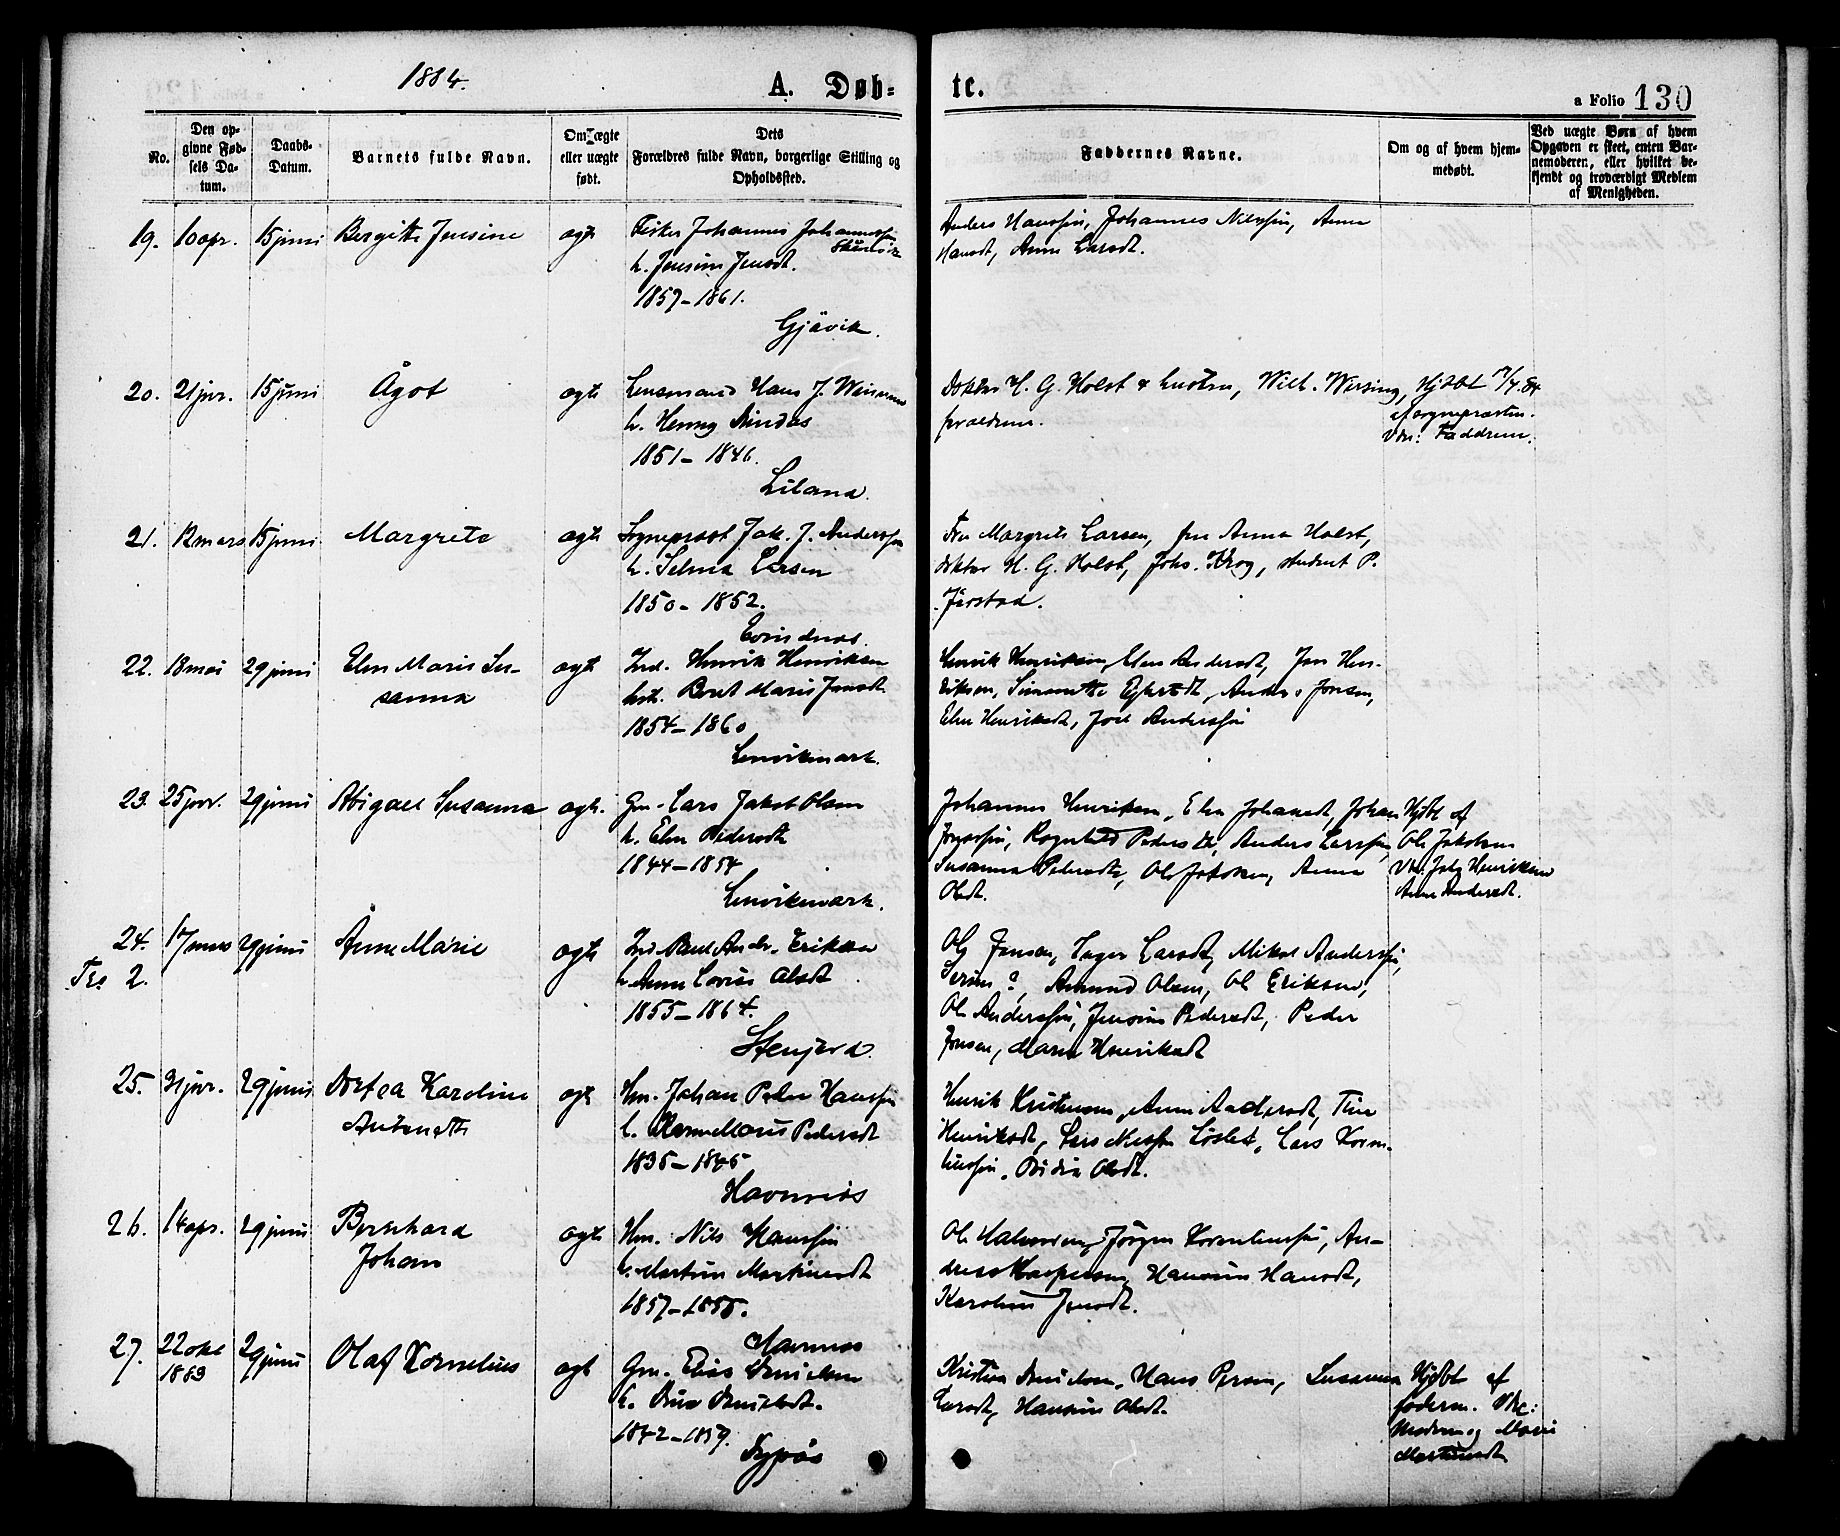 1884.
A. Døb-
te.
a Folio 130
No.
Den op-
givne Fød-
sels Da-
tum.
Daabs-
Datum.
Barnets fulde Navn.
Om ægte
eller uægte
født.
Dets
Forældres fulde Navn, borgerlige Stilling og
Opholdssted.
Faddernes Navne.
Om og af hvem hjem-
medøbt.
Ved uægte Børn af hvem
Opgaven er skeet, enten Bar-
nemoderen, eller hvilket be-
kjendt og troværdigt Medlem
af Menigheden.
19. 10 apr. 15 juni Bergitte Jensine ægte
Fisker Johannes Johannessen
h. Jensine Jensdt.
1857-1861.
Gjövik.
Anders Hanssen, Johannes Nilssen, Anne
Hansdt, Anne Larsdt.
20. 21 jnr. 15 juni Ågot ægte
Lensmand Hans J.
h. Henny
1851-1846.
Doktor H. G. Holst & hustru, Wilh. Wersing,
forældrene.
Hjdbt
af sognepræsten.
Vdn: Faddrene.
21. 12 mars 15 juni Margrete ægte
Sogneprest Jak. J. Anderssen
h. Selma Larsen
1850-1852.
Evindnes.
Fru Margrete Larsen, fru Anna Holst,
doktor H. G. Holst, Johs. Krog, student P.
22. 18 mai 29 juni Elen Marie Su-
sanna
ægte
Ind. Henrik Henriksen
hst. Beret Marie Jensdt
1854-1860
Lenvikmark.
Henrik Henriksen, Elen Andersdt, Jon Hen-
riksen, Anders Jonsen,
Elen Henriksdt, Joel Anderssen
23. 25 jnr. 29 juni Abigael Susanna ægte.
Gm. Lars Jakob Olsen
h. Elen Pedersdt
1844-1854
Lenvikmark.
Johannes Henriksen, Elen Johansdt, Johan
Jonassen, Ragnhild Pedersdt, Anders Larssen,
Susanna Pedersdt, Ole Jakobsen, Anne
Olsdt.
Hjdbt af
Ole Jakobsen
Vdn: Johs Henriksen
Anne Andersdt.
24. 17 mars 29 juni Anne Marie ægte
2.
Ind. Paul Andr. Eriksen
h. Anne Lovise Olsdt
1855-1864.
Stenjord.
Ole Jensen, Inger Larsdt, Mikal Anderssen,
?, Amund Olsen, Ole Eriksen,
Ole Anderssen, Jensine Pedersdt, Peder
Jonsen, Maria Henriksdt
25. 31 jnr. 29 juni Dortea Karoline
Antonette
ægte
Hm. Johan Peder Hanssen
h. Anne Marie Pedersdt
1835-1845
Havnnes
Henrik Kristensen, Anne Andersdt, Tine
Henriksdt, Lars Nilssen, Lars Korne-
liussen, Olsdt.
26. 14 apr. 29 juni Bernhard
Johan
ægte
Hm. Nils Hanssen
h. Martine Martinusdt
1857-1855.
Havnnes
Ole Halvorsen, Jörgen Korneliussen, An-
dreas Kaspersen, Hansine Hansdt,
Karoline Jensdt.
27. 22 okt
1883
29 juni Olaf Kornelius ægte
Gm. Elias
h.
1842-1857.
Kristian Hans Persen, Susanna
Larsdt, Hansine Olsdt.
Hjdbt af
faderen. Vdn:
Moderen og Marie
Martinusdt